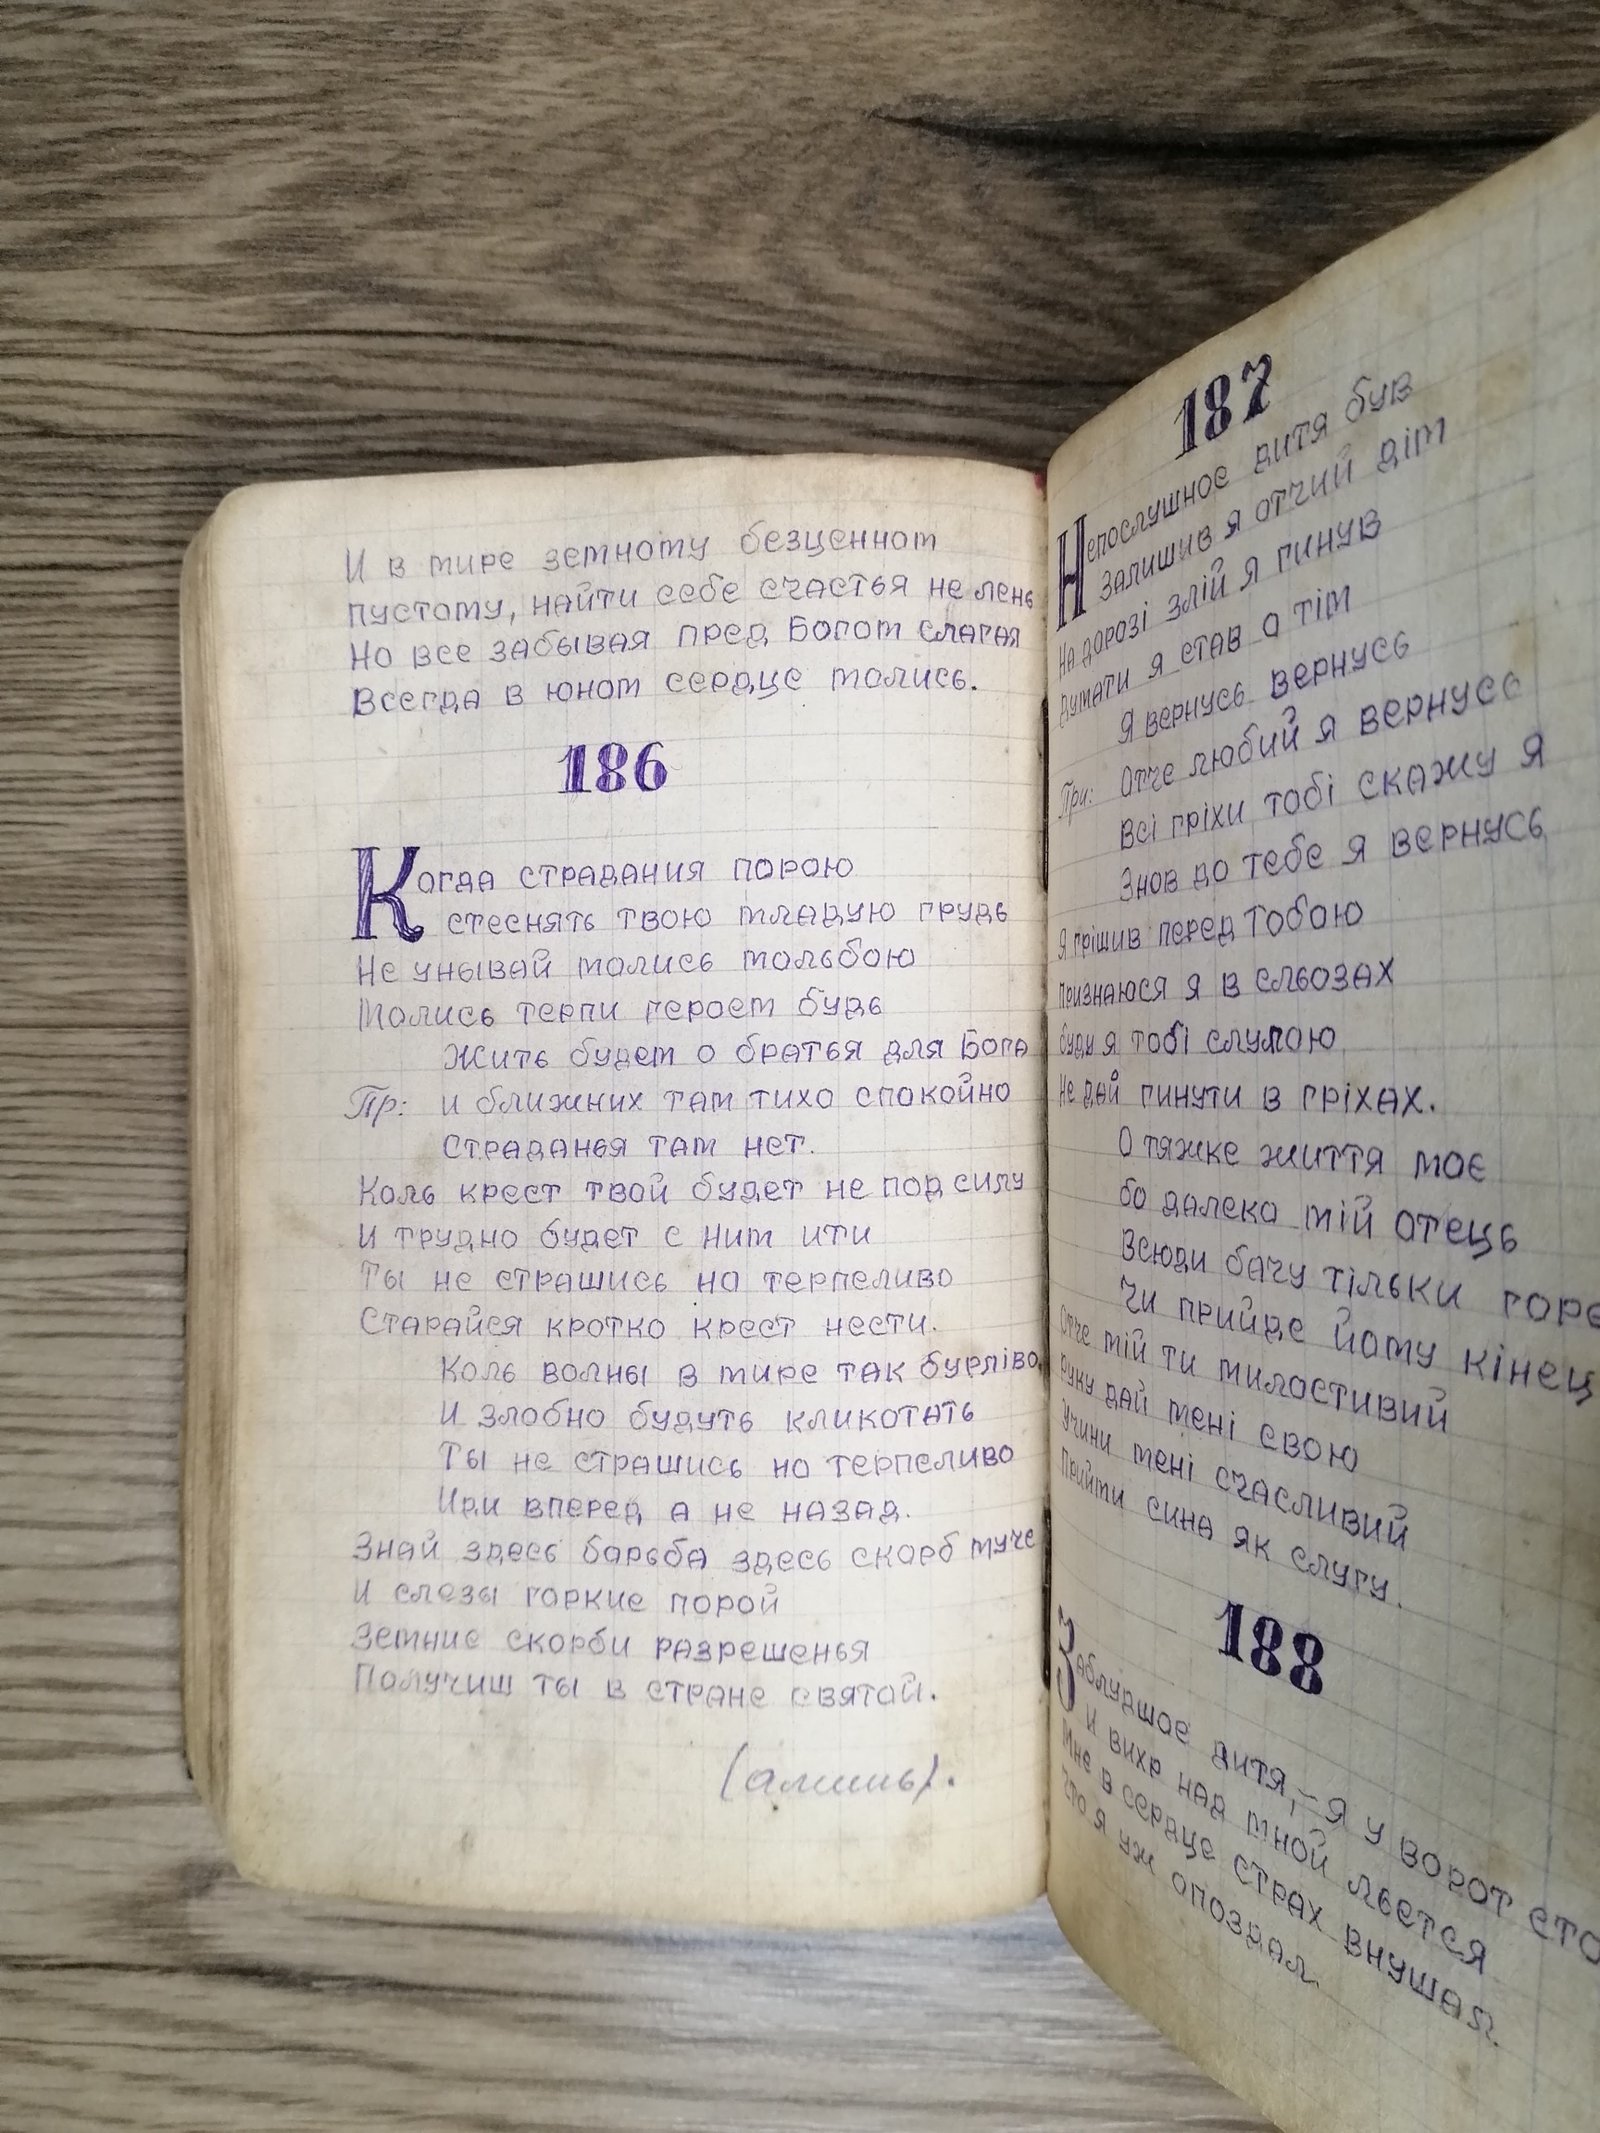 И в мире земному безценном
пустому, найти себе счастья не лень
Но все забывая пред Богом слагая
Всегда в юном сердце молись.
186
Когда страдания порою
стеснять твою младую грудь
Не унывай молись мольбою
Молись терпи героем будь
Жить будем о братья для Бога
Пр: и ближних там тихо спокойно
Страданья там нет.
Коль крест твой будет не под силу
И трудно будет с ним ити
Ты не страшись но терпеливо
Старайся кротко крест нести.
Коль волны в мире так бурліво
И злобно будуть кликотать
Ты не страшись но терпеливо
Иди вперед а не назад.
Знай здесь борьба здесь скорб муче
И слезы горкие порой
Земние скорби разрешенья
Получиш ты в стране святой.
(аминь).
187
Непослушноє дитя був
Залишив я отчий дім
На дорозі злій я гинув
Думати я став о тім
Я вернусь вернусь
При: Отче любий я вернусь
Всі гріхи тобі скажу я
Знов до тебе я вернусь
Я грішив перед Тобою
признаюся я в сльозах
буду я тобі слугою
Не дай гинути в гріхах.
О тяжке життя моє
бо далеко мій отець
Всюди бачу тільки горе
Чи прийде йому кінец
Отче мій ти милостивий
руку дай мені свою
Учини мені счасливий
Прийми сина як слугу.
188
Заблудшоє дитя, – Я у ворот сто
И вихр над мной льется
Мне в сердце страх внушая.
Что я уж опоздал